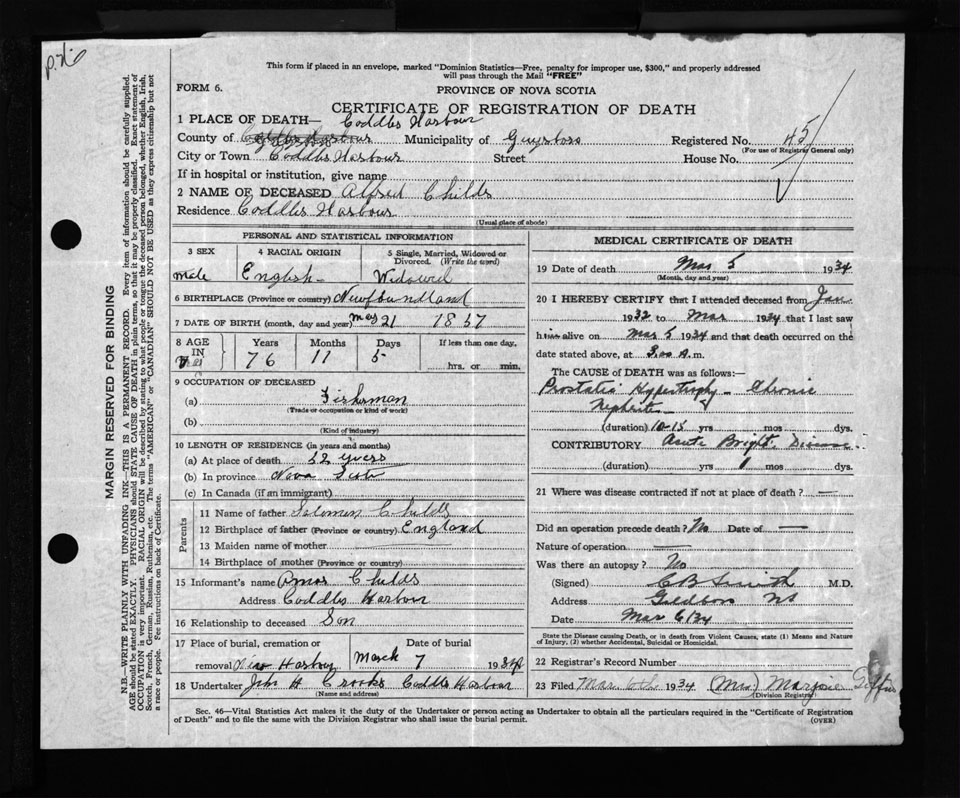 This form if placed in an envelope, marked "Dominion Statistics—Free, penalty for improper use, $300," and properly addressed
will pass through the Mail "FREE"
FORM 6.
PROVINCE OF NOVA SCOTIA
CERTIFICATE OF REGISTRATION OF DEATH
1 PLACE OF DEATH— Coddles Harbour
County of Municipality of Guysboro Registered No. 45
(For use of Registrar General only)
City or Town Coddles Harbour Street House No.
If in hospital or institution, give name
2 NAME OF DECEASED Alfred Childs
Residence Coddles Harbour
(Usual place of abode)
PERSONAL AND STATISTICAL INFORMATION
3 SEX 4 RACIAL ORIGIN 5 Single, Married, Widowed or Divorced. (Write the word)
Male English Widowed
6 BIRTHPLACE (Province or country) Newfoundland
7 DATE OF BIRTH (month, day and year) May 21 1857
8 AGE IN Years Months Days If less than one day,
76 11 5 hrs. or min.
9 OCCUPATION OF DECEASED
(a) Fisherman
(Trade or occupation or kind of work)
(b)
(Kind of industry)
10 LENGTH OF RESIDENCE (in years and months)
(a) At place of death 52 years
(b) In province Nova Scotia
(c) In Canada (if an immigrant)
Parents
11 Name of father Solomon Childs
12 Birthplace of father (Province or country) England
13 Maiden name of mother
14 Birthplace of mother (Province or country)
15 Informant's name Amos Childs
Address Coddles Harbour
16 Relationship to deceased Son
17 Place of burial, cremation or Date of burial
removal March 7 1934
18 Undertaker John H Crooks Coddles Harbour
(Name and address)
MEDICAL CERTIFICATE OF DEATH
19 Date of death Mar 5 1934
(Month, day and year)
20 I HEREBY CERTIFY that I attended deceased from Jan
1932 to Mar 1934 that I last saw
him alive on Mar 5 1934 and that death occurred on the
date stated above, at 3.00 A.m.
The CAUSE OF DEATH was as follows:
Prostatic Hypertrophy Chronic
Nephritis
(duration) 10-15 yrs mos dys.
CONTRIBUTORY Acute Brights Disease
(duration) yrs 1 mos dys.
21 Where was disease contracted if not at place of death? —
Did an operation precede death? No Date of —
Nature of operation —
Was there an autopsy? No
(Signed) C B Smith M.D.
Address Goldboro NS
Date Mar 6/34
State the Disease causing Death, or in death from Violent Causes, state (1) Means and Nature
of Injury, (2) whether Accidental, Suicidal or Homicidal.
22 Registrar's Record Number
23 Filed Mar 6th 1934 (Mrs) Marjorie Giffin
(Division Registrar)
Sec. 46—Vital Statistics Act makes it the duty of the Undertaker or person acting as Undertaker to obtain all the particulars required in the "Certificate of Registration
of Death" and to file the same with the Division Registrar who shall issue the burial permit.
(OVER)
MARGIN RESERVED FOR BINDING
N.B.—WRITE PLAINLY WITH UNFADING INK—THIS IS A PERMANENT RECORD. Every item of information should be carefully supplied.
AGE should be stated EXACTLY. PHYSICIANS should STATE CAUSE OF DEATH in plain terms, so that it may be properly classified. Exact statement of
OCCUPATION is very important. RACIAL ORIGIN will be described by stating to what people or tongue the deceased person belonged, whether English, Irish,
Scotch, French, German, Russian, Ruthenian, etc. The terms "AMERICAN" or "CANADIAN" SHOULD NOT BE USED as they express citizenship but not
a race or people. See instructions on back of Certificate.